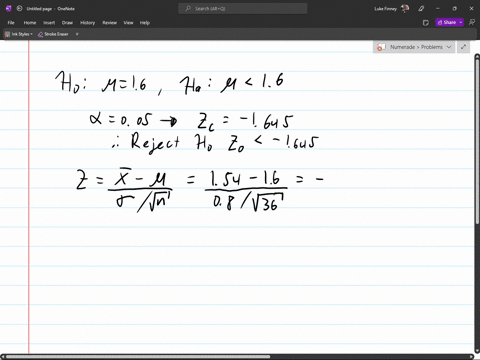 Untitled page - OneNote
Luke Finney
File Home Insert Draw History Review View Help
Share
Ink Styles
Stroke Eraser
Numerade > Problems
H₀: μ=1.6 , Hₐ: μ < 1.6
α = 0.05 → Z_c = -1.645
∴ Reject H₀ Z₀ < -1.645
Z = (x̄ - μ)/(σ/√n) = (1.54 - 1.6)/(0.8/√36) = -